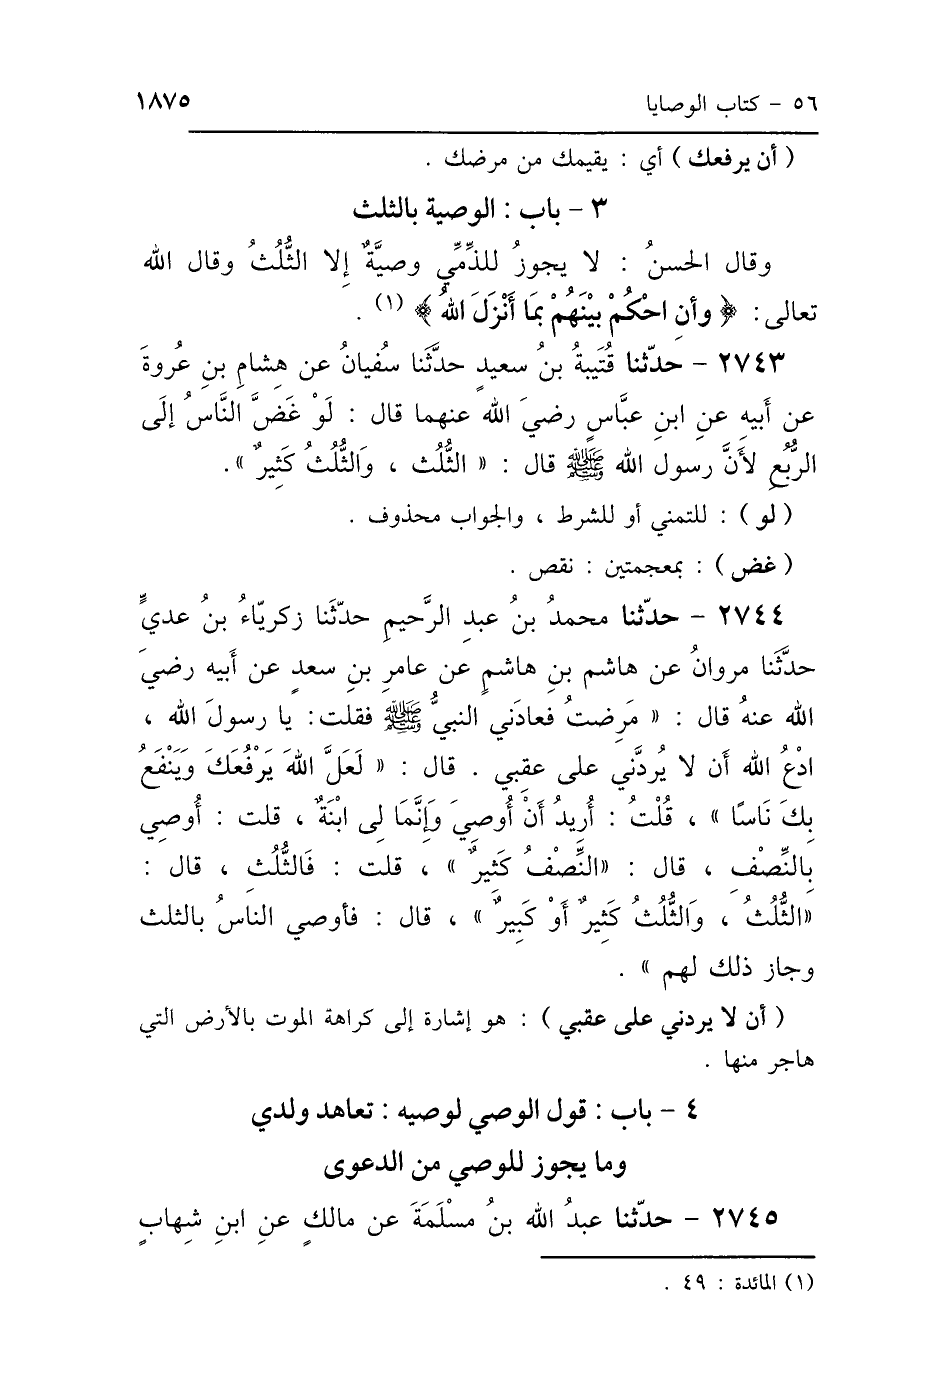 ٥٦ - كتاب الوصايا ١٨٧٥
( أن يرفعك ) أي : يقيمك من مرضك .
٣ - باب : الوصية بالثلث
وقال الحسنُ : لا يجوزُ للذِّمِّي وصيَّةٌ إِلا الثُّلُثُ وقال الله
تعالى : ﴿ وأنِ احْكُمْ بيْنَهُمْ بمَا أَنْزَلَ اللهُ ﴾ (١) .
٢٧٤٣ - حدّثنا قُتَيبةُ بنُ سعيدٍ حدَّثَنا سُفيانُ عن هِشامِ بنِ عُروةَ
عن أَبيهِ عنِ ابنِ عبَّاسٍ رضيَ الله عنهما قال : لَوْ غَضَّ النَّاسُ إِلَى
الرُّبُعِ لأَنَّ رسول الله ﷺ قال : « الثُّلُث ، وَالثُّلُثُ كَثِيرٌ » .
( لو ) : للتمني أو للشرط ، والجواب محذوف .
( غض ) : بمعجمتين : نقص .
٢٧٤٤ - حدّثنا محمدُ بنُ عبدِ الرَّحيمِ حدّثَنا زكريّاءُ بنُ عديٍّ
حدَّثَنا مروانُ عن هاشم بنِ هاشمٍ عن عامرِ بنِ سعدٍ عن أَبيه رضيَ
الله عنهُ قال : « مَرِضتُ فعادَني النبيُّ ﷺ فقلت : يا رسولَ الله ،
ادْعُ الله أَن لا يُردَّني على عقِبي . قال : « لَعَلَّ اللهَ يَرْفَعُكَ وَيَنْفَعُ
بِكَ نَاسًا » ، قُلْتُ : أُريدُ أَنْ أُوصِيَ وَإِنَّمَا لِى ابْنَةٌ ، قلت : أُوصِي
بالنِّصْفِ ، قال : «النِّصْفُ كَثِيرٌ » ، قلت : فَالثُّلُثِ ، قال :
«الثُّلُثُ ، وَالثُّلُثُ كَثِيرٌ أَوْ كَبِيرٌ » ، قال : فأوصي الناسُ بالثلث
وجاز ذلك لهم » .
( أن لا يردني على عقبي ) : هو إشارة إلى كراهة الموت بالأرض التي
هاجر منها .
٤ - باب : قول الوصي لوصيه : تعاهد ولدي
وما يجوز للوصي من الدعوى
٢٧٤٥ - حدّثنا عبدُ الله بنُ مسْلَمَةَ عن مالكٍ عنِ ابنِ شِهابٍ
(١) المائدة : ٤٩ .